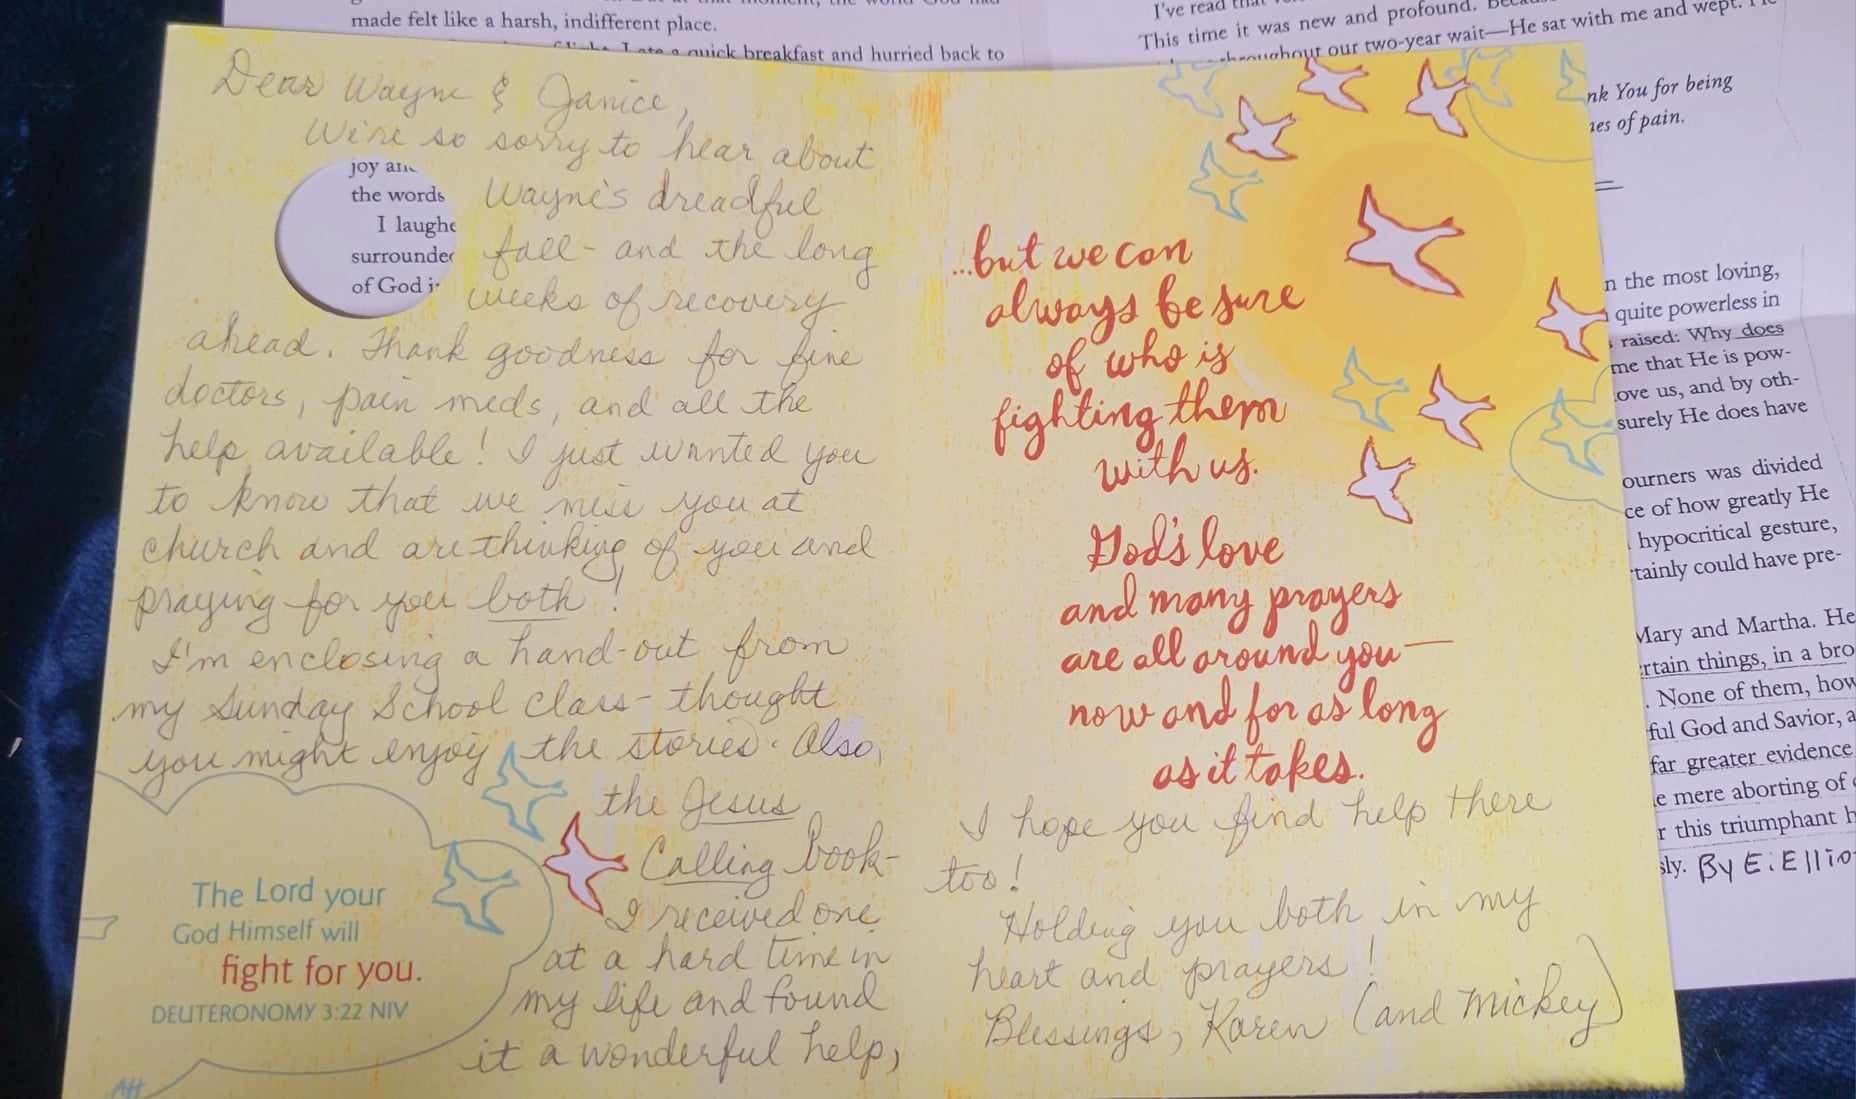 made felt like a harsh, indifferent place.
I ate a quick breakfast and hurried back to
I've read that
This time it was new and profound.
throughout our two-year wait—He sat with me and wept.
Dear Wayne & Janice,
We're so sorry to hear about
Wayne's dreadful
fall - and the long
weeks of recovery
ahead. Thank goodness for fine
doctors, pain meds, and all the
help available! I just wanted you
to know that we miss you at
church and are thinking of you and
praying for you both!
I'm enclosing a hand-out from
my Sunday School class - thought
you might enjoy the stories. Also,
the Jesus
Calling book -
I received one
at a hard time in
my life and found
it a wonderful help,
joy
the words
I laughe
surrounde
of God
The Lord your
God Himself will
fight for you.
DEUTERONOMY 3:22 NIV
...but we can
always be sure
of who is
fighting them
with us.
God's love
and many prayers
are all around you—
now and for as long
as it takes.
I hope you find help there
too!
Holding you both in my
heart and prayers!
Blessings, Karen (and Mickey)
nk You for being
es of pain.
n the most loving,
quite powerless in
raised: Why does
me that He is pow-
ove us, and by oth-
surely He does have
ourners was divided
ce of how greatly He
hypocritical gesture,
rtainly could have pre-
Mary and Martha. He
rtain things, in a bro
. None of them, how
ful God and Savior, a
far greater evidence
e mere aborting of
r this triumphant h
sly. By E. Ellio